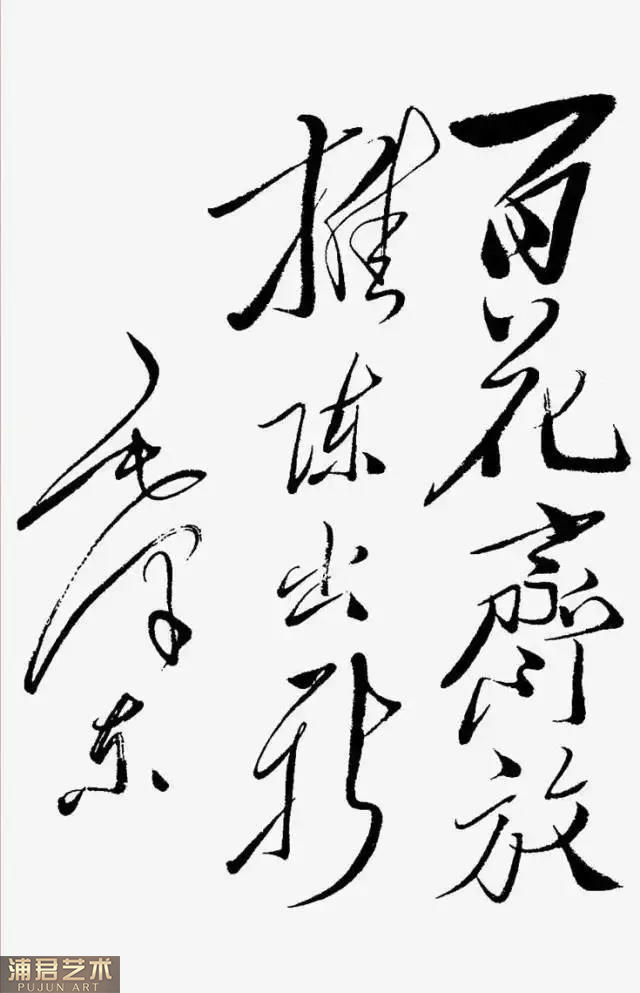 百花齊放
推陈出新
毛泽东
浦君艺术
PUJUN ART